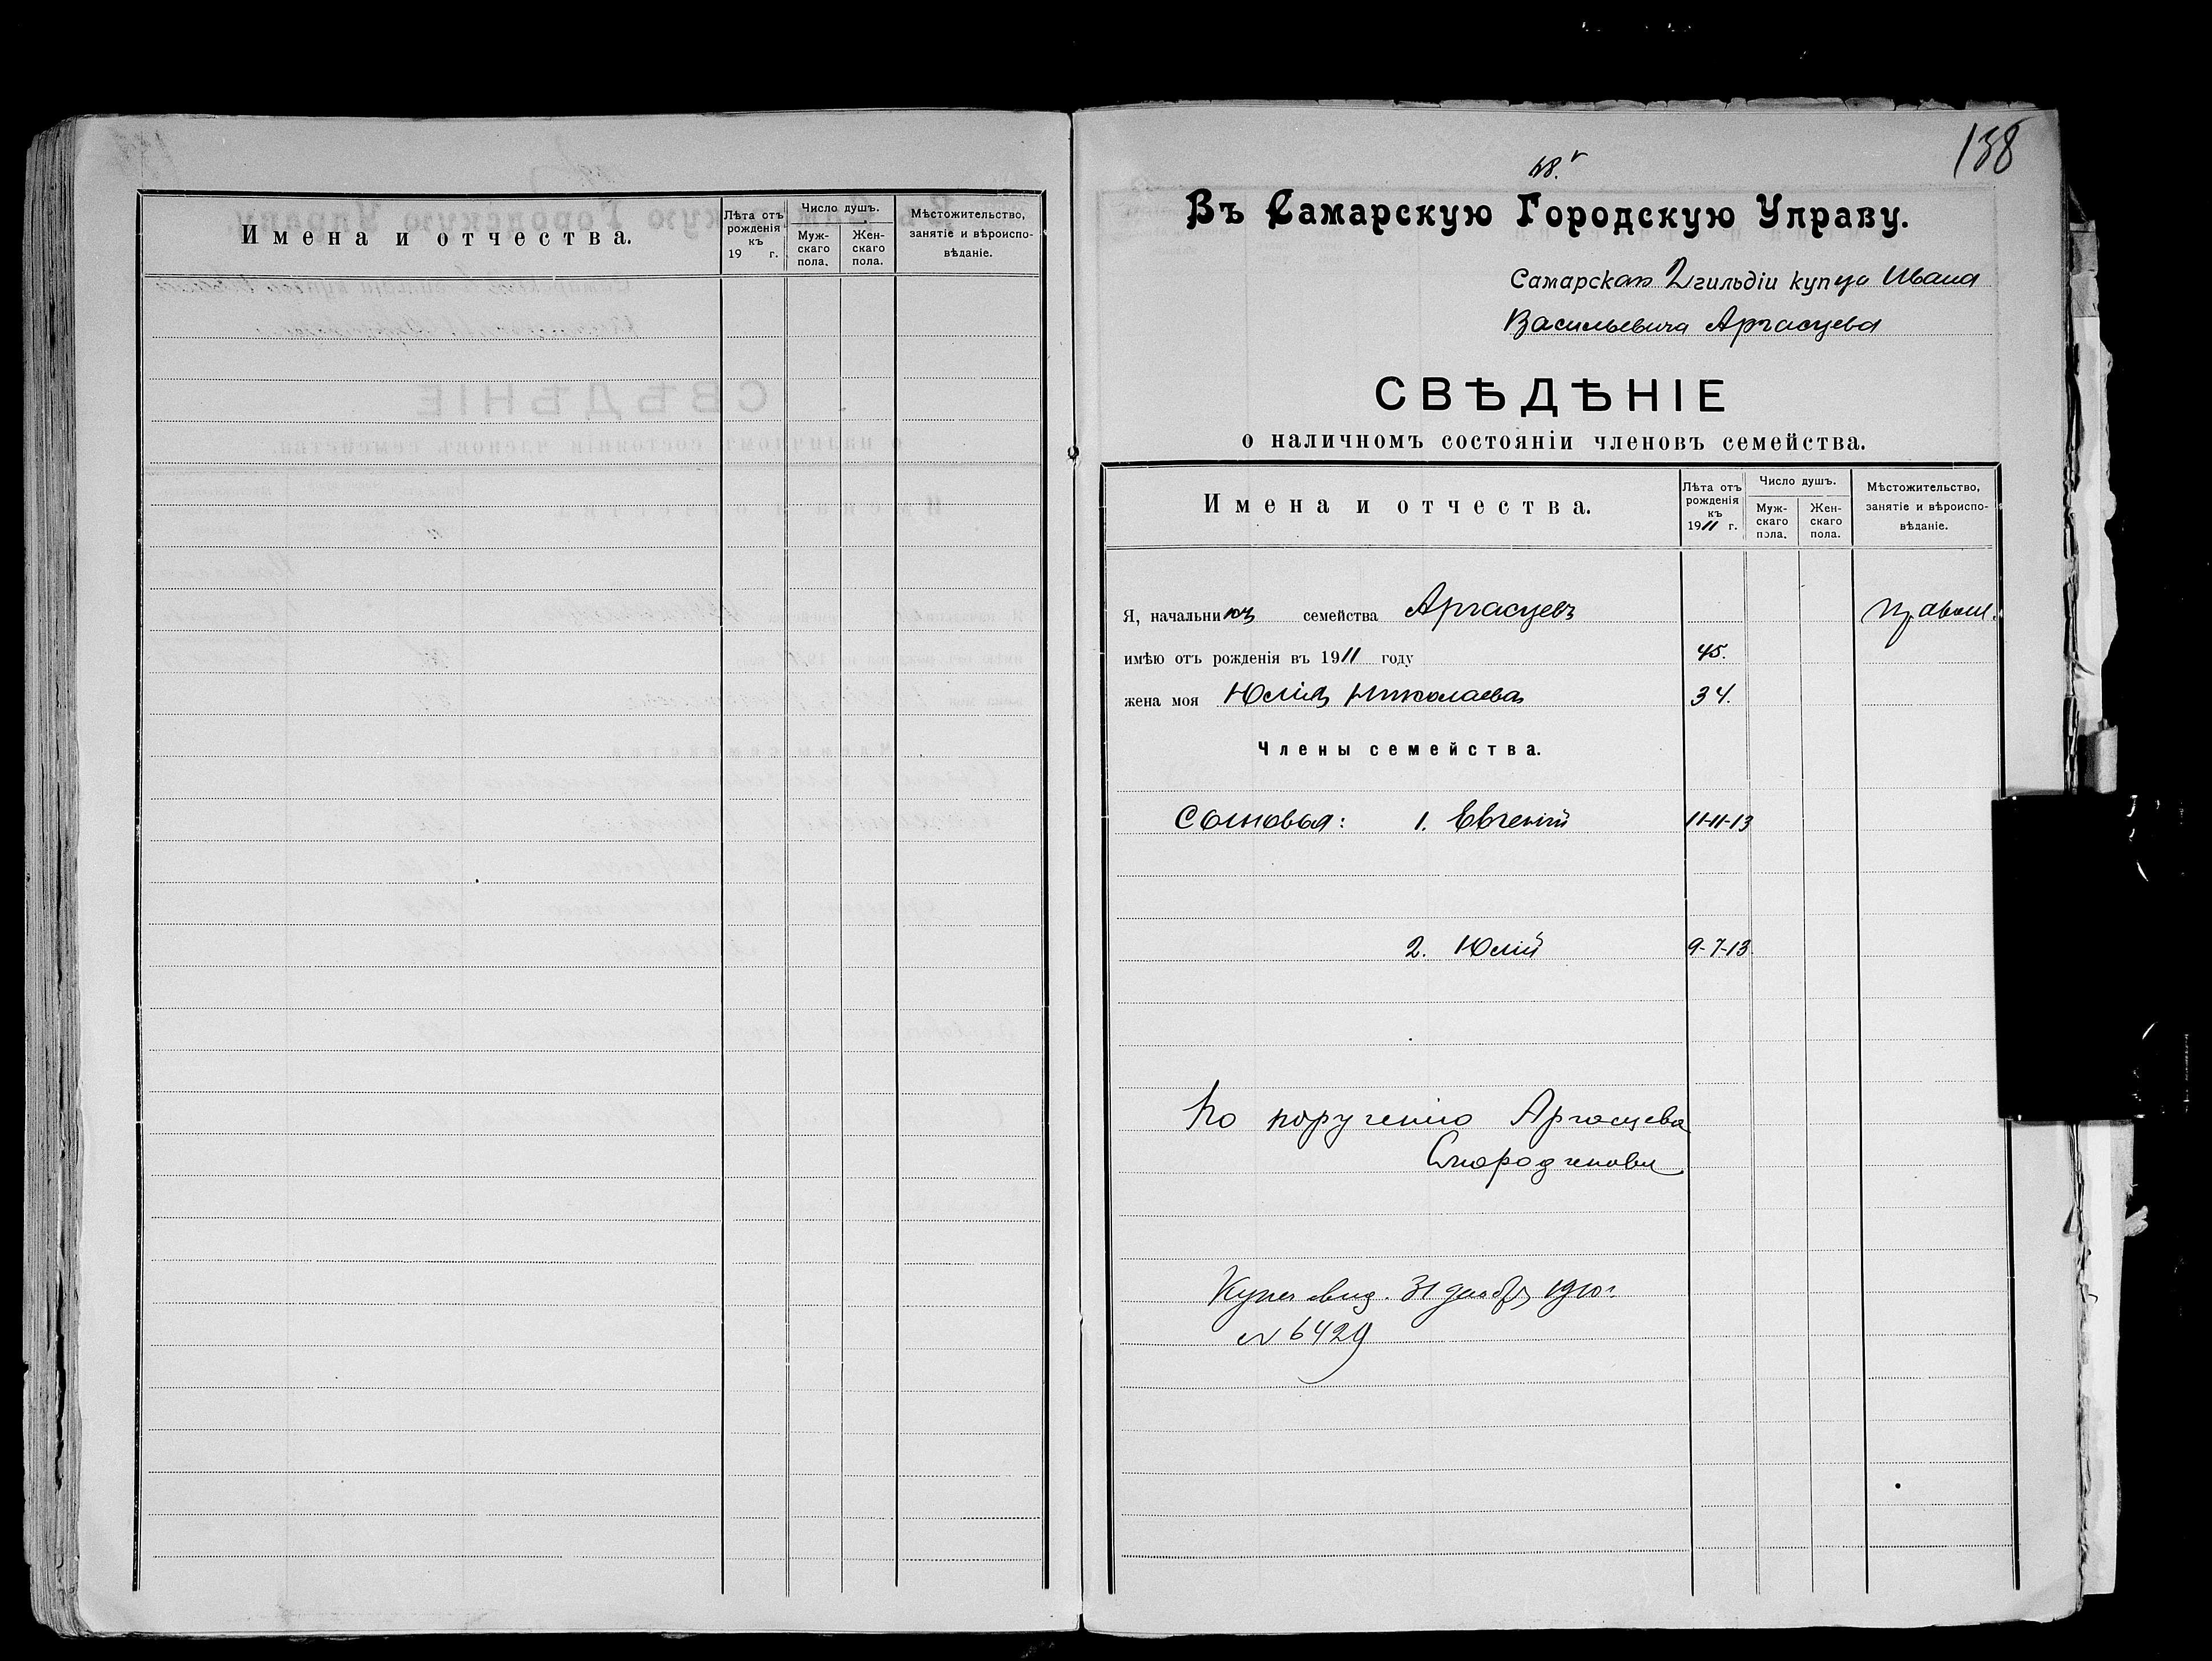 Имена и отчества.
Лѣта отъ рожденія къ 19 г.
Число душъ.
Муж-
скаго
пола.
Жен-
скаго
пола.
Мѣстожительство,
занятіе и вѣроиспо-
вѣданіе.
138
48.
Въ Самарскую Городскую Управу.
Самарскаго 2 гильдіи купца Ивана
Васильевича Аргасцева
СВѢДѢНІЕ
о наличномъ состояніи членовъ семейства.
Имена и отчества.
Лѣта отъ
рожденія
къ
1911 г.
Число душъ.
Муж-
скаго
пола.
Жен-
скаго
пола.
Мѣстожительство,
занятіе и вѣроиспо-
вѣданіе.
Я, начальникъ семейства Аргасцевъ Правосл.
имѣю отъ рожденія въ 1911 году 45.
жена моя Юлія Николаева 34.
Члены семейства.
Сыновья: 1. Евгеній 11-11-13
2. Юлій 9-7-13.
По порученію Аргасцева
Купеч. свид. 31 декабря 1910 г.
№ 6429